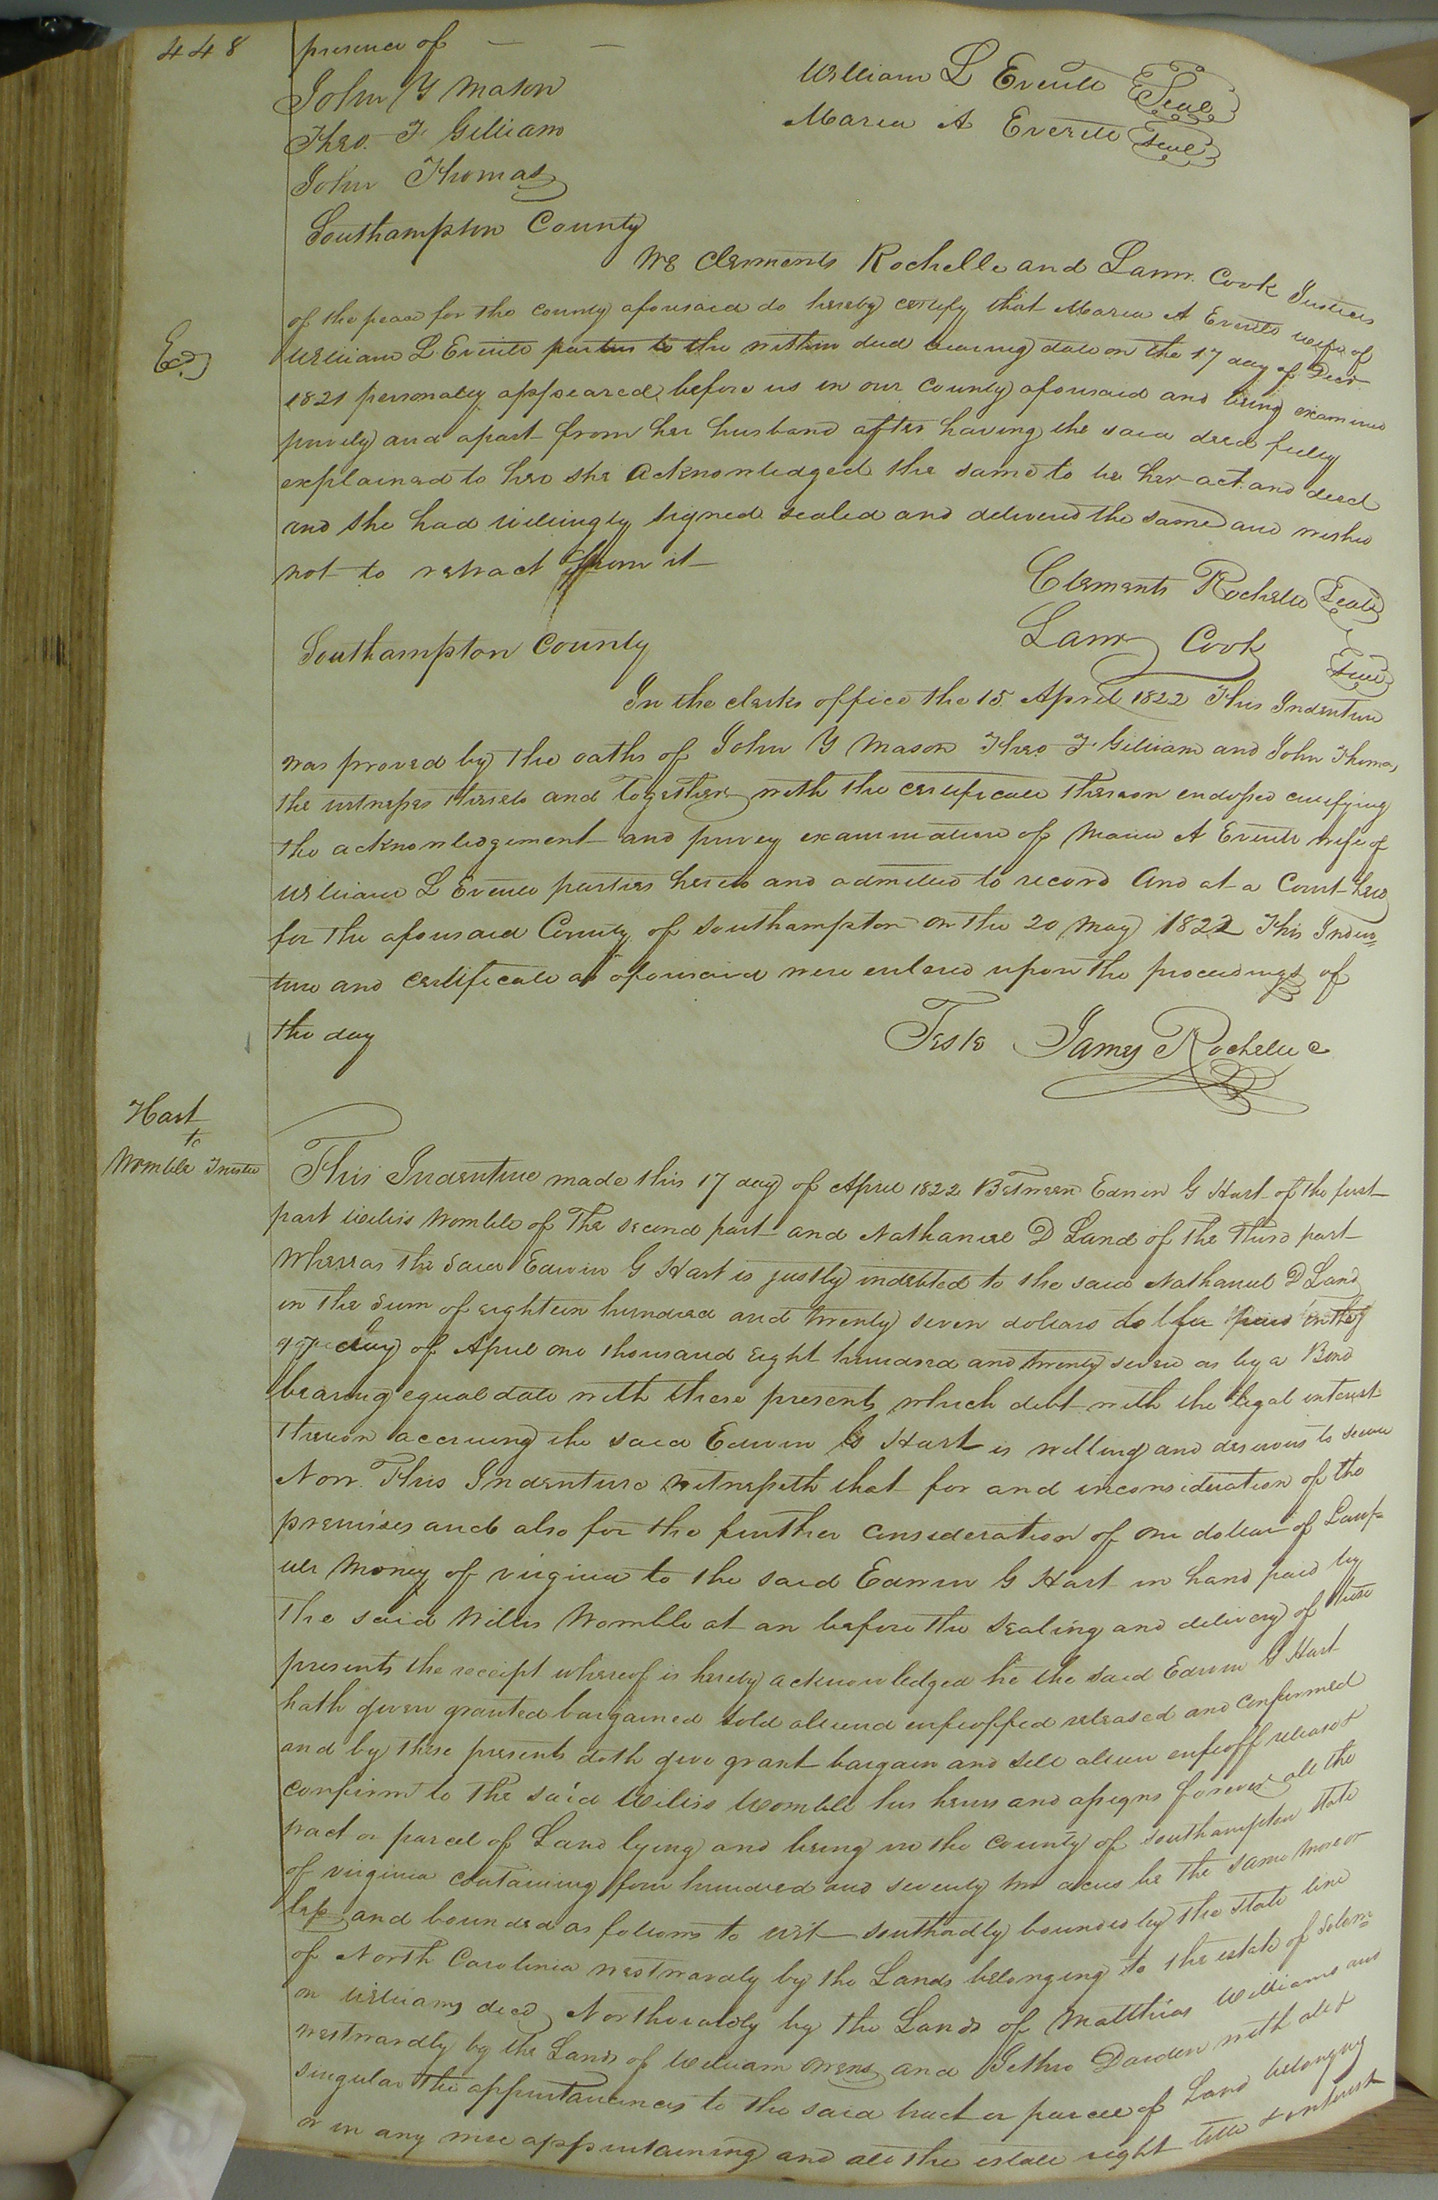 448
presence of — —
John Y Mason
Theo. F. Gilliam
John Thomas
William L Everitt Seal
Maria A Everitt Seal
Southampton County
We Clements Rochelle and Lawr. Cook Justices
of the peace for the county aforesaid do hereby certify that Maria A Everitt wife of
Exd
William L Everitt parties to the within deed bearing date on the 17 day of Decr
1821 personally appeared before us in our County aforesaid and being examined
privily and apart from her husband after having the said deed fully
explained to her she acknowledged the same to be her act and deed
and she had willingly signed sealed and delivered the same and wished
not to retract from it
Clements Rochelle Seal
Lawr Cook Seal
Southampton County
In the clerks office the 15 April 1822 This Indenture
was proved by the oaths of John Y Mason Theo. F. Gilliam and John Thomas
the witnesses thereto and together with the certificate thereon endorsed certifying
the acknowledgement and privy examination of Maria A Everitt wife of
William L Everitt parties hereto and admitted to record And at a Court held
for the aforesaid County of Southampton on the 20 May 1822 This Inden=
ture and certificate as aforesaid were entered upon the proceedings of
the day
Teste James Rochelle C
Hart
to
Womble Trustee
This Indenture made this 17 day of April 1822 Between Edwin G Hart of the first
part Willis Womble of The second part and Nathaniel D Land of the third part
Whereas the said Edwin G Hart is justly indebted to the said Nathaniel D Land
in the sum of eighteen hundred and twenty seven dollars to be paid on the
day of April one thousand eight hundred and twenty seven as by a Bond
bearing equal date with these presents which debt with the legal interest
thereon accruing the said Edwin G Hart is willing and desirous to secure
Now This Indenture witnesseth that for and inconsideration of the
premises and also for the further consideration of one dollar of Lawf=
ull money of virginia to the said Edwin G Hart in hand paid by
The said Willis Womble at an before the sealing and delivery of these
presents the receipt whereof is hereby acknowledged he the said Edwin G Hart
hath given granted bargained sold aliened enfeoffed released and confirmed
and by these presents doth give grant bargain and sell alien enfeoff release &
confirm to the said Willis Womble his heirs and assigns forever all the
tract or parcel of Land lying and being in the county of Southampton state
of virginia containing four hundred and seventy two acres be the same more or
less and bounded as follows to wit southardly bounded by the state line
of North Carolina westwardly by the Lands belonging to the estate of Solom=
on Williams decd Northwardly by the Lands of Matthias Williams and
westwardly by the Lands of William Owens and Jethro Darden with all &
singular the appurtanances to the said tract or parcel of Land belonging
or in any wise appurtaining and all the estate right title & interest